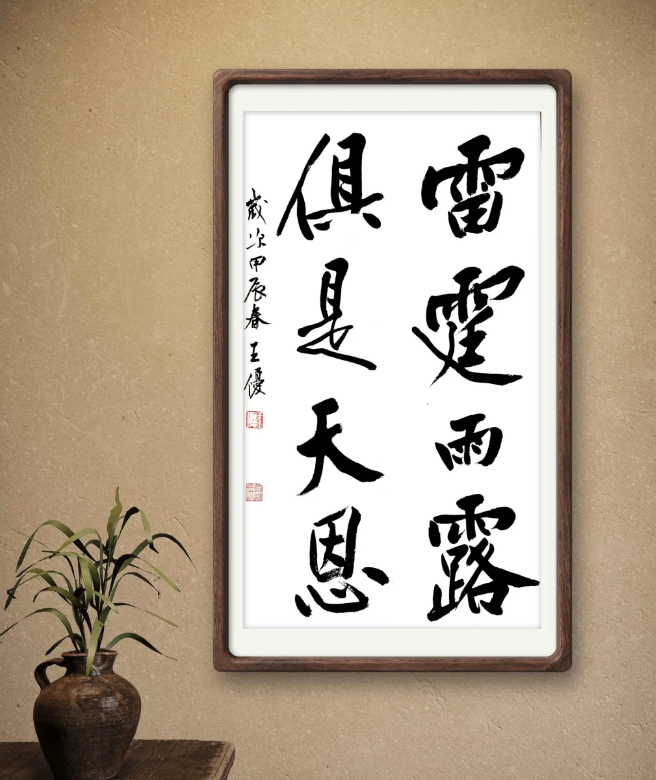 雷霆雨露
俱是天恩
歲次甲辰春 王優